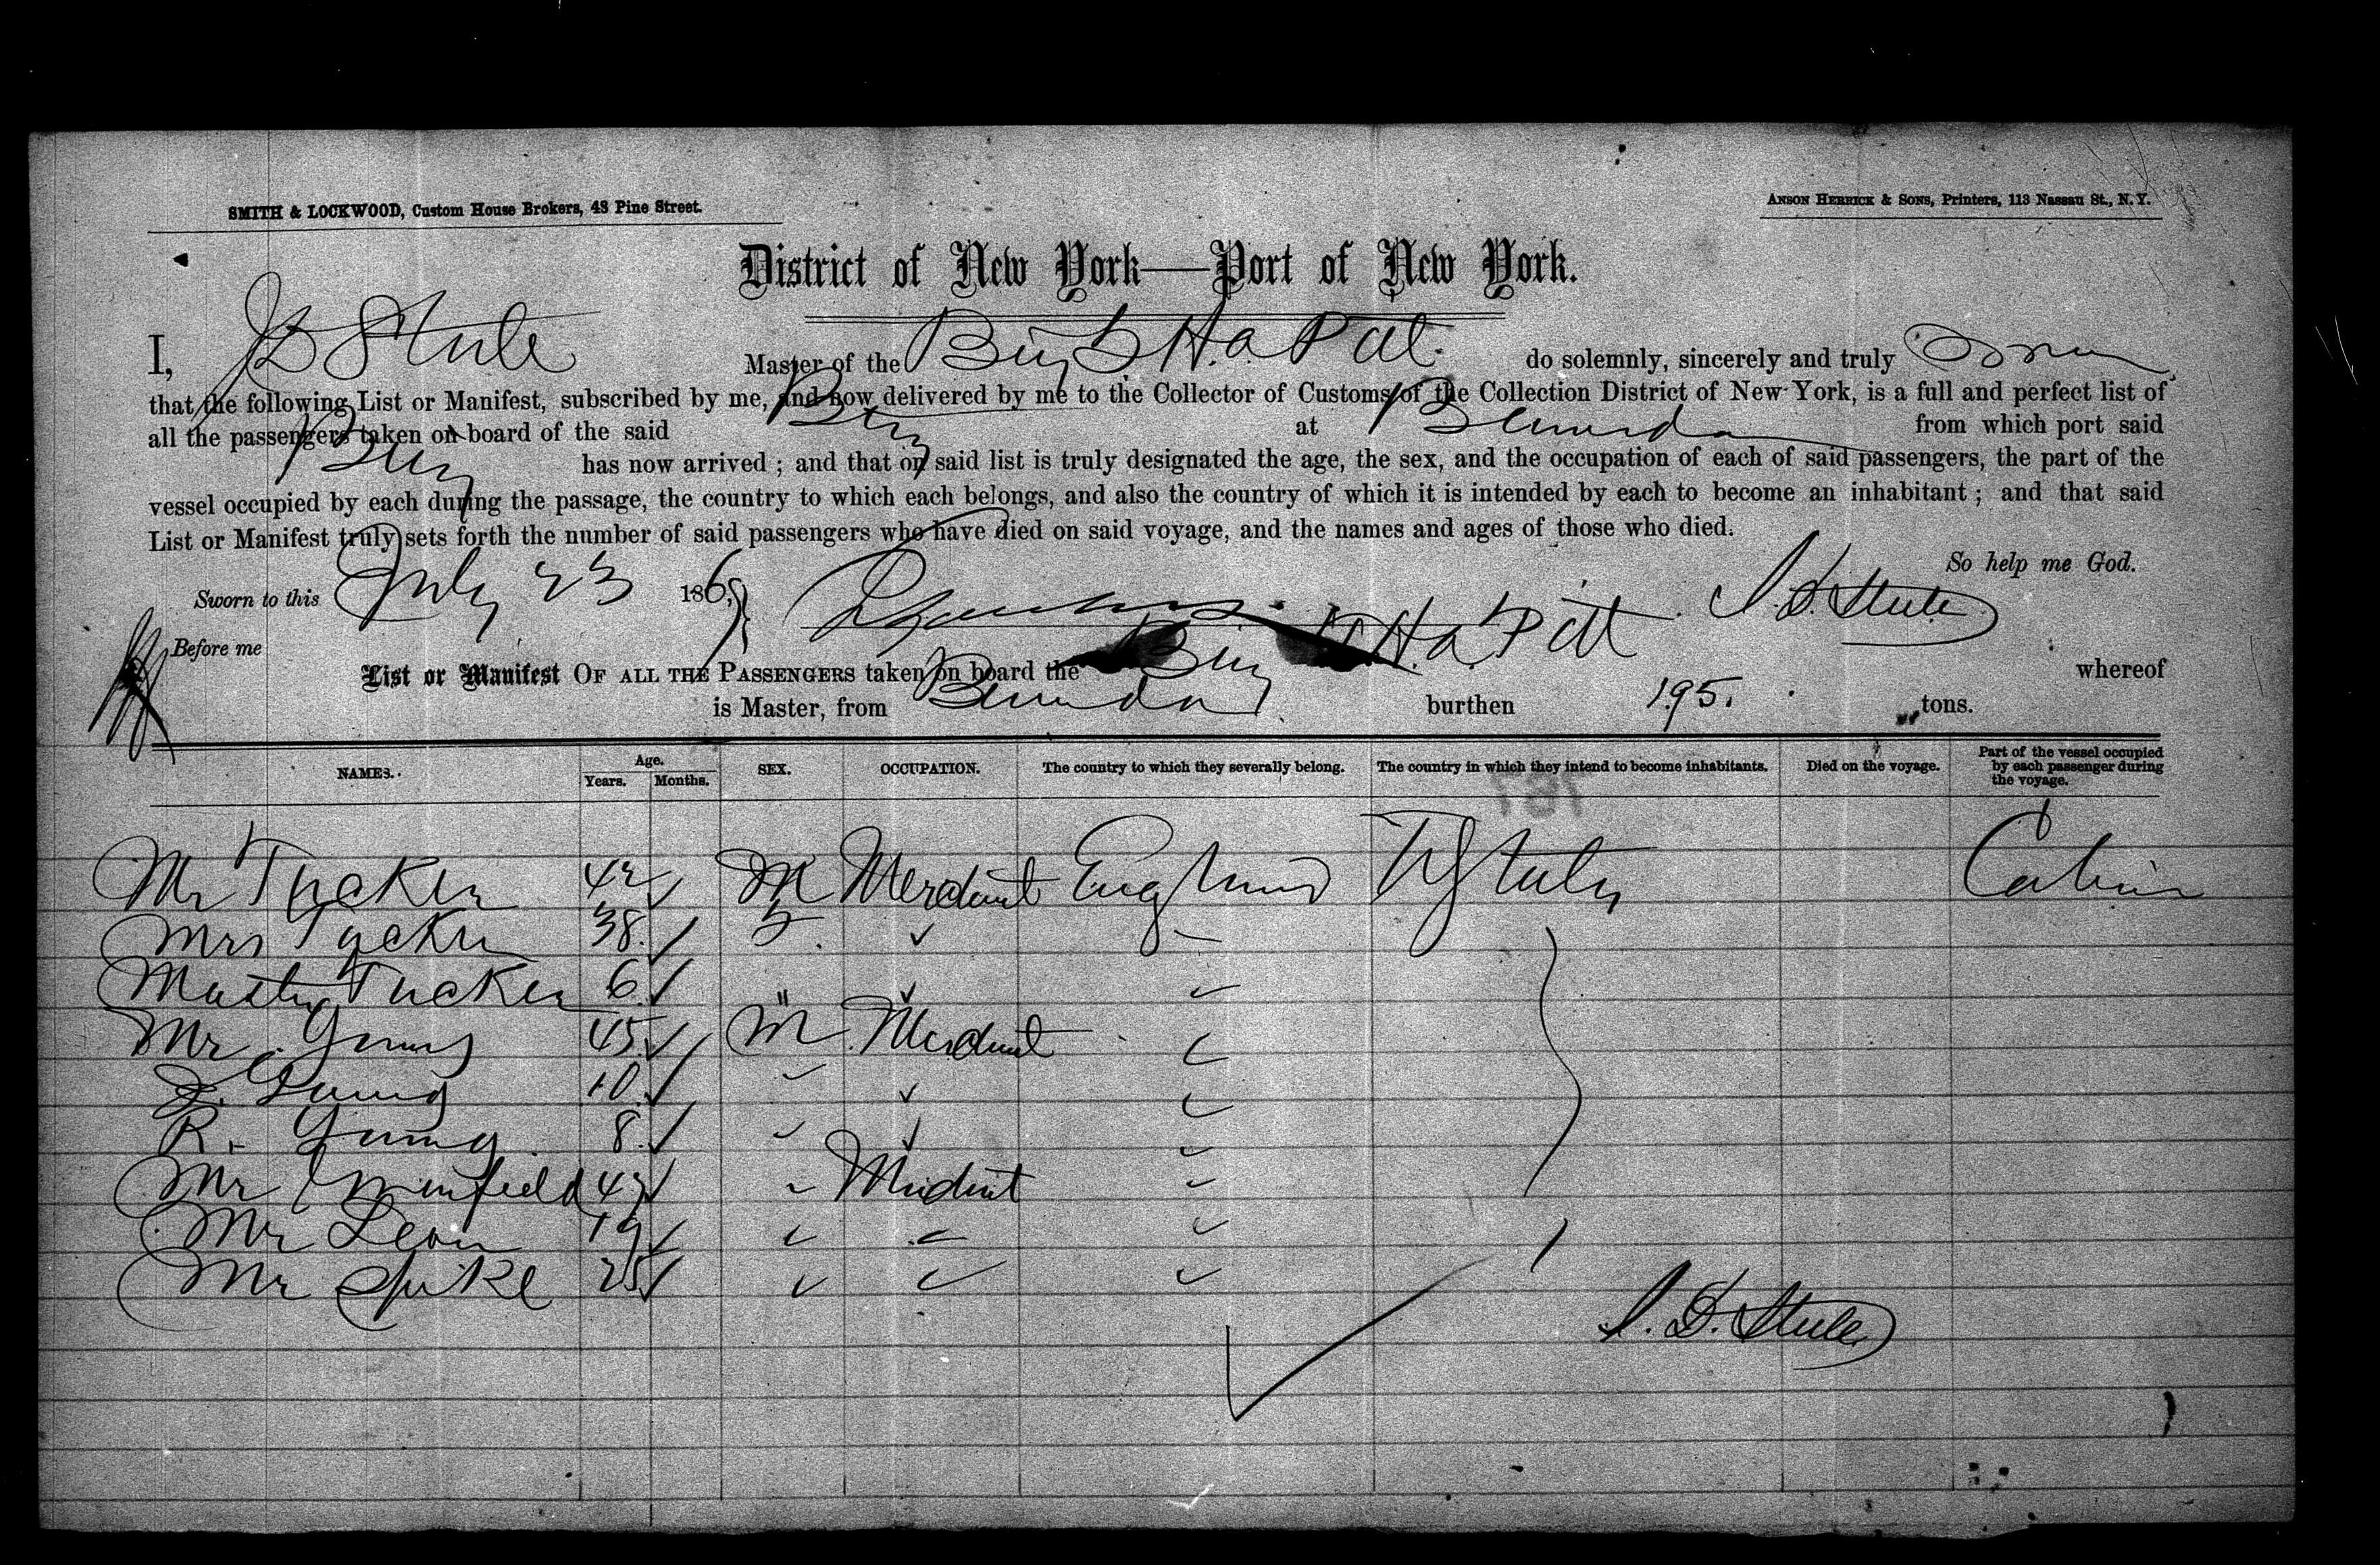 SMITH & LOCKWOOD, Custom House Brokers, 48 Pine Street.
ANSON HERRICK & SONS, Printers, 113 Nassau St., N. Y.
District of New York—Port of New York.
I, Master of the do solemnly, sincerely and truly
that the following List or Manifest, subscribed by me, and now delivered by me to the Collector of Customs of the Collection District of New York, is a full and perfect list of
all the passengers taken on board of the said at Bermuda from which port said
has now arrived ; and that on said list is truly designated the age, the sex, and the occupation of each of said passengers, the part of the
vessel occupied by each during the passage, the country to which each belongs, and also the country of which it is intended by each to become an inhabitant ; and that said
List or Manifest truly sets forth the number of said passengers who have died on said voyage, and the names and ages of those who died.
So help me God.
Sworn to this July 23 186
Before me
List or Manifest OF ALL THE PASSENGERS taken on board the H. A. Pitt whereof
is Master, from Bermuda burthen 195. tons.
NAMES. Age. Years. Months. SEX. OCCUPATION. The country to which they severally belong. The country in which they intend to become inhabitants. Died on the voyage. Part of the vessel occupied by each passenger during the voyage.
Mr Tucker 42 M Merchant England Cabin
Mrs Tucker 38 F
Master Tucker 6 "
Mr Young 45 M Merchant
Young 10
R. Young 8
Mr Merchant
Mr 19
Mr Spike 25